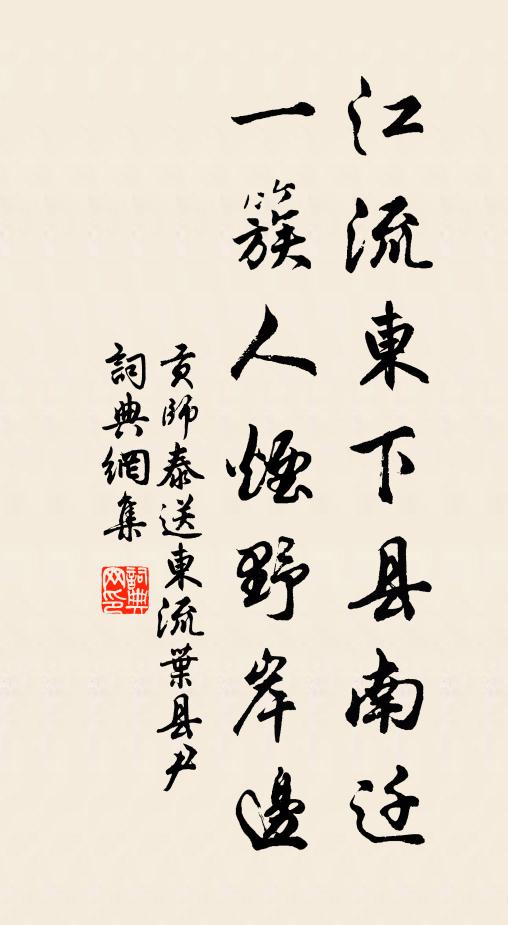 江流東下县南迁
一簇人煙野岸邊
贡師泰送東流葉县尹
詞典網集
詞典网印